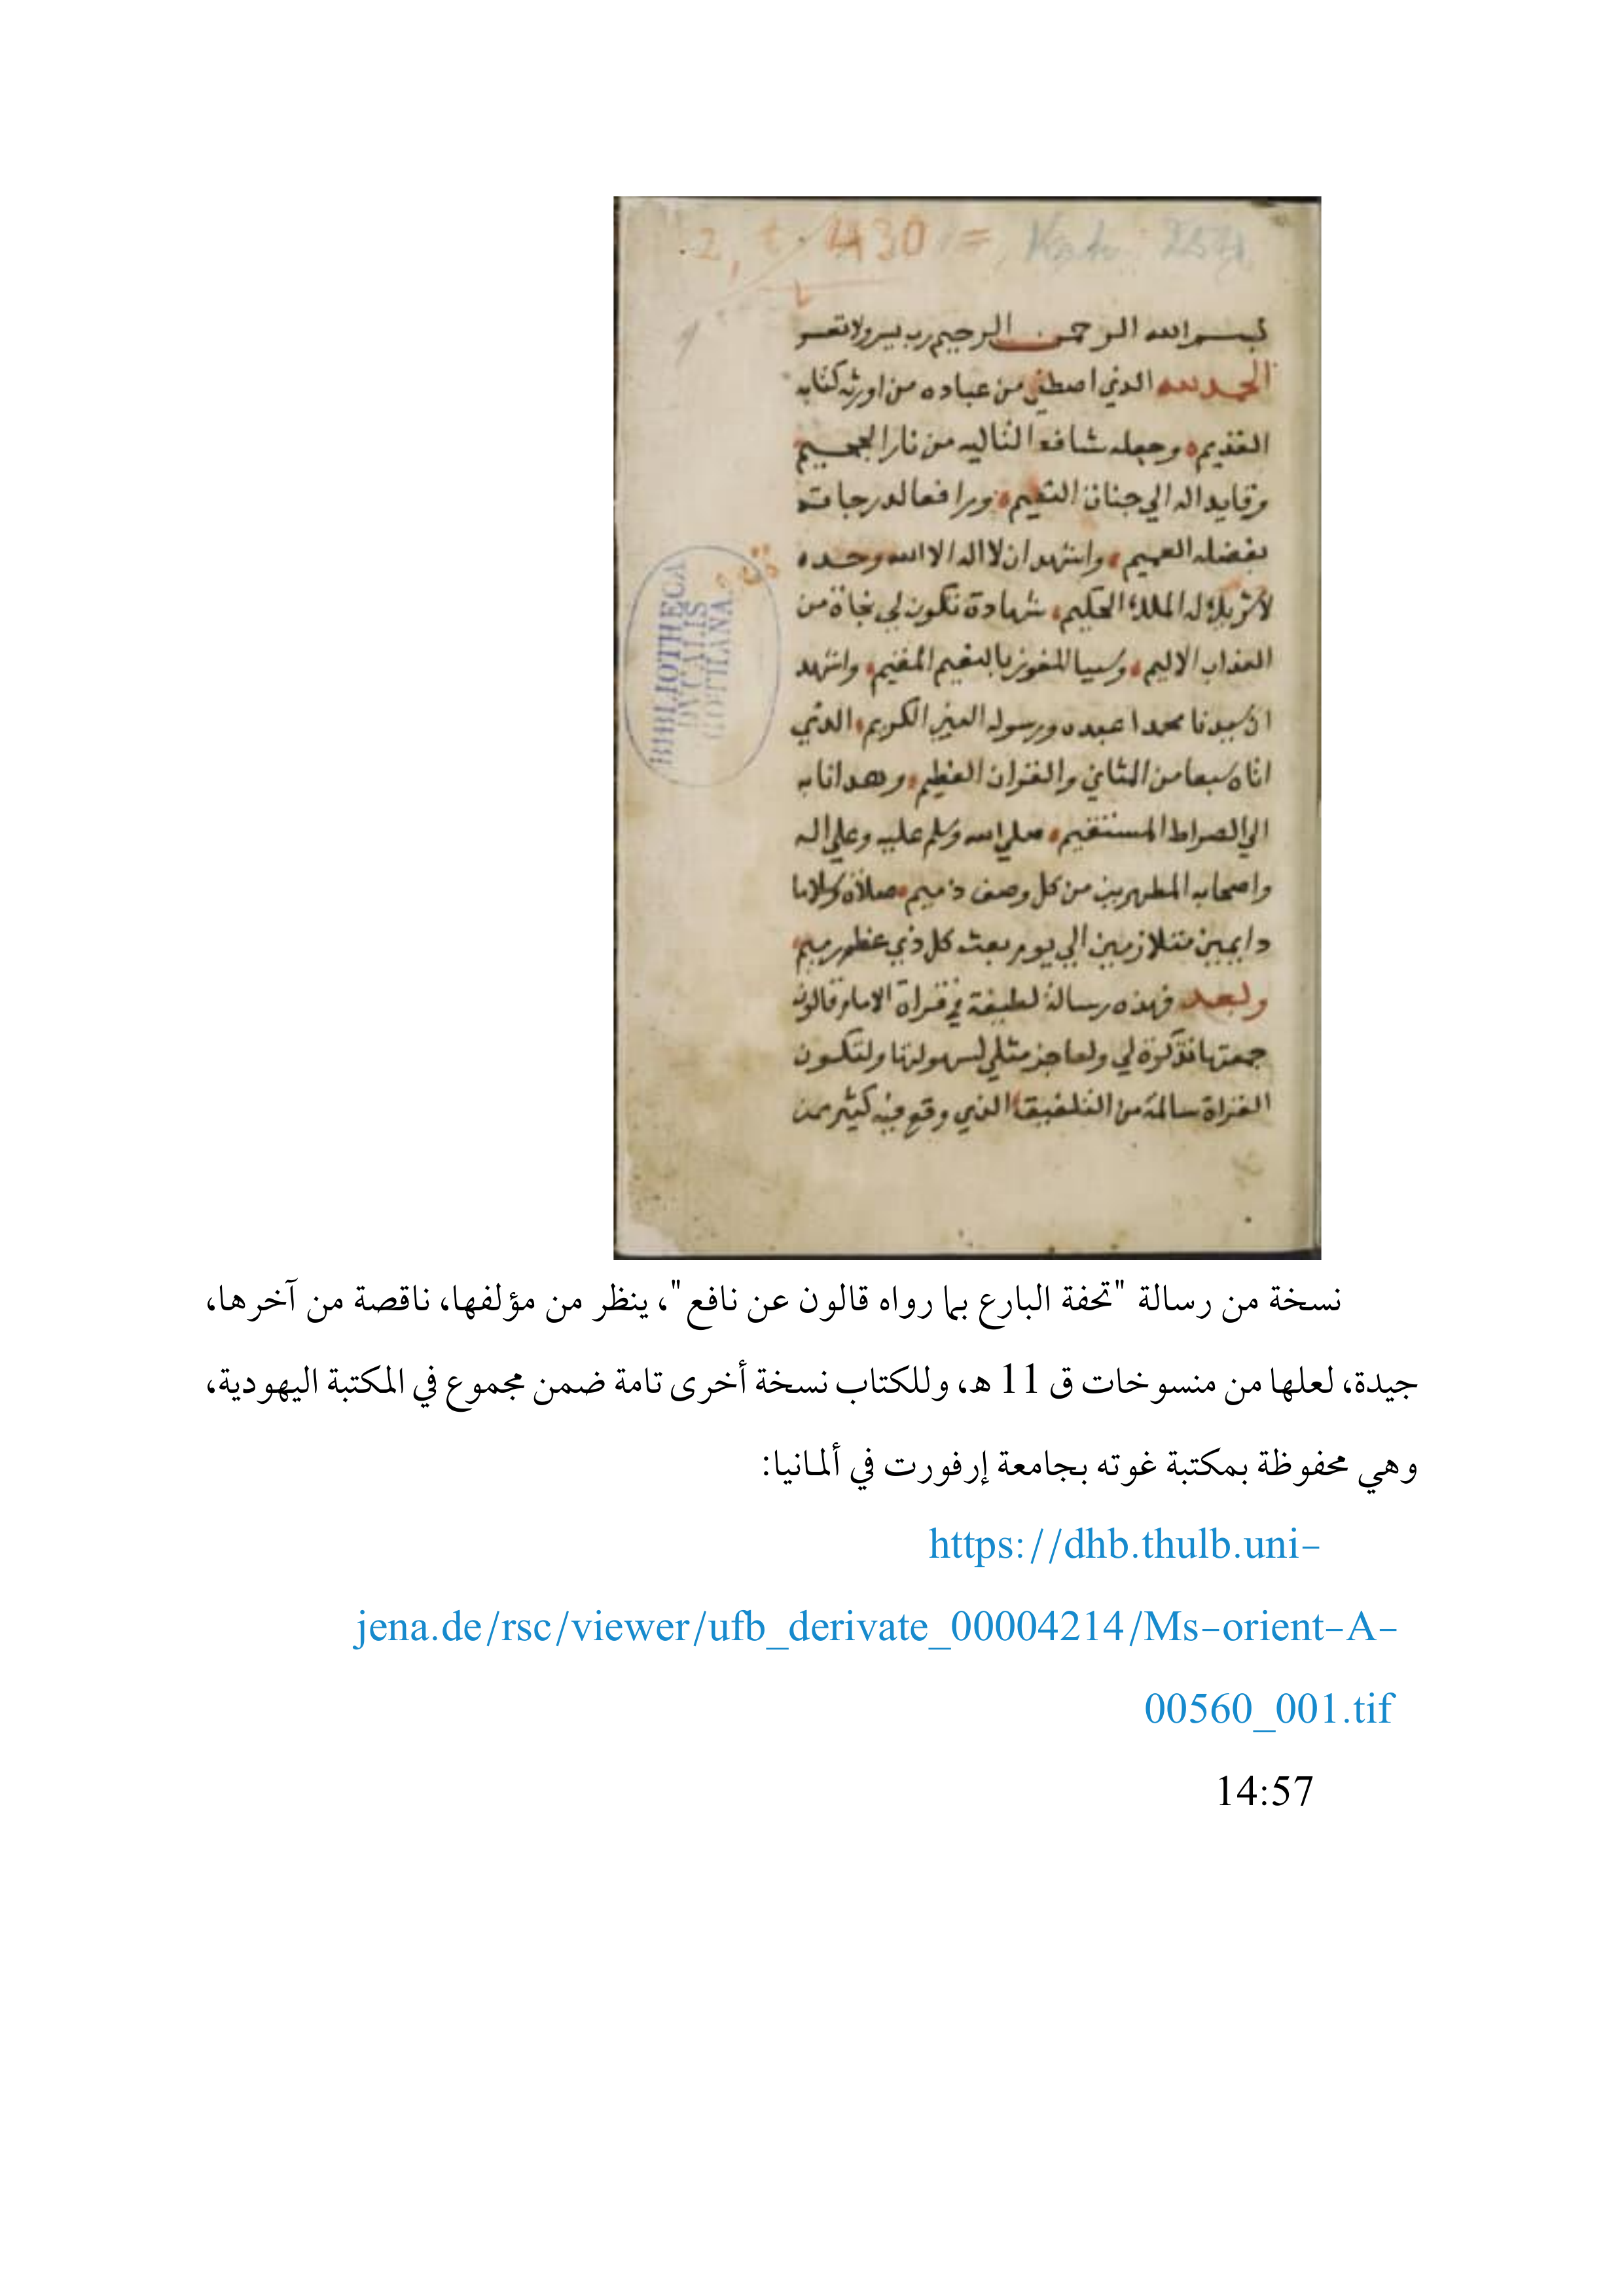 2, t. 430 = Kat. 2574
بسم الله الرحمن الرحيم رب يسر ولا تعسر
الحمد لله الذي اصطفي من عباده من اورثه كتابه
القديم وجعله شافعا لتاليه من نار الجحيم
وقايدا له الي جنان النعيم ورافعا لدرجاته
بفضله العميم واشهد ان لا اله الا الله وحده
لا شريك له الملك الحكيم شهادة تكون لي نجاة من
العذاب الاليم وسببا للفوز بالنعيم المقيم واشهد
ان سيدنا محمدا عبده ورسوله النبي الكريم الذي
اتاه سبعا من المثاني والقران العظيم وهدانا به
الي الصراط المستقيم صلي الله وسلم عليه وعلي اله
واصحابه المطهرين من كل وصف ذميم صلاة وسلاما
دايمين متلازمين الي يوم بعث كل ذي عظم رميم
وبعد فهذه رسالة لطيفة في قراة الامام قالون
جمعتها تذكرة لي ولعاجز مثلي لسهولتها ولتكون
القراة سالمة من التلفيق الذي وقع فيه كثير ممن
BIBLIOTHECA
DVCALIS
GOTHANA
نسخة من رسالة "تحفة البارع بما رواه قالون عن نافع"، ينظر من مؤلفها، ناقصة من آخرها،
جيدة، لعلها من منسوخات ق 11 هـ، وللكتاب نسخة أخرى تامة ضمن مجموع في المكتبة اليهودية،
وهي محفوظة بمكتبة غوته بجامعة إرفورت في ألمانيا:
https://dhb.thulb.uni-
jena.de/rsc/viewer/ufb_derivate_00004214/Ms-orient-A-
00560_001.tif
14:57